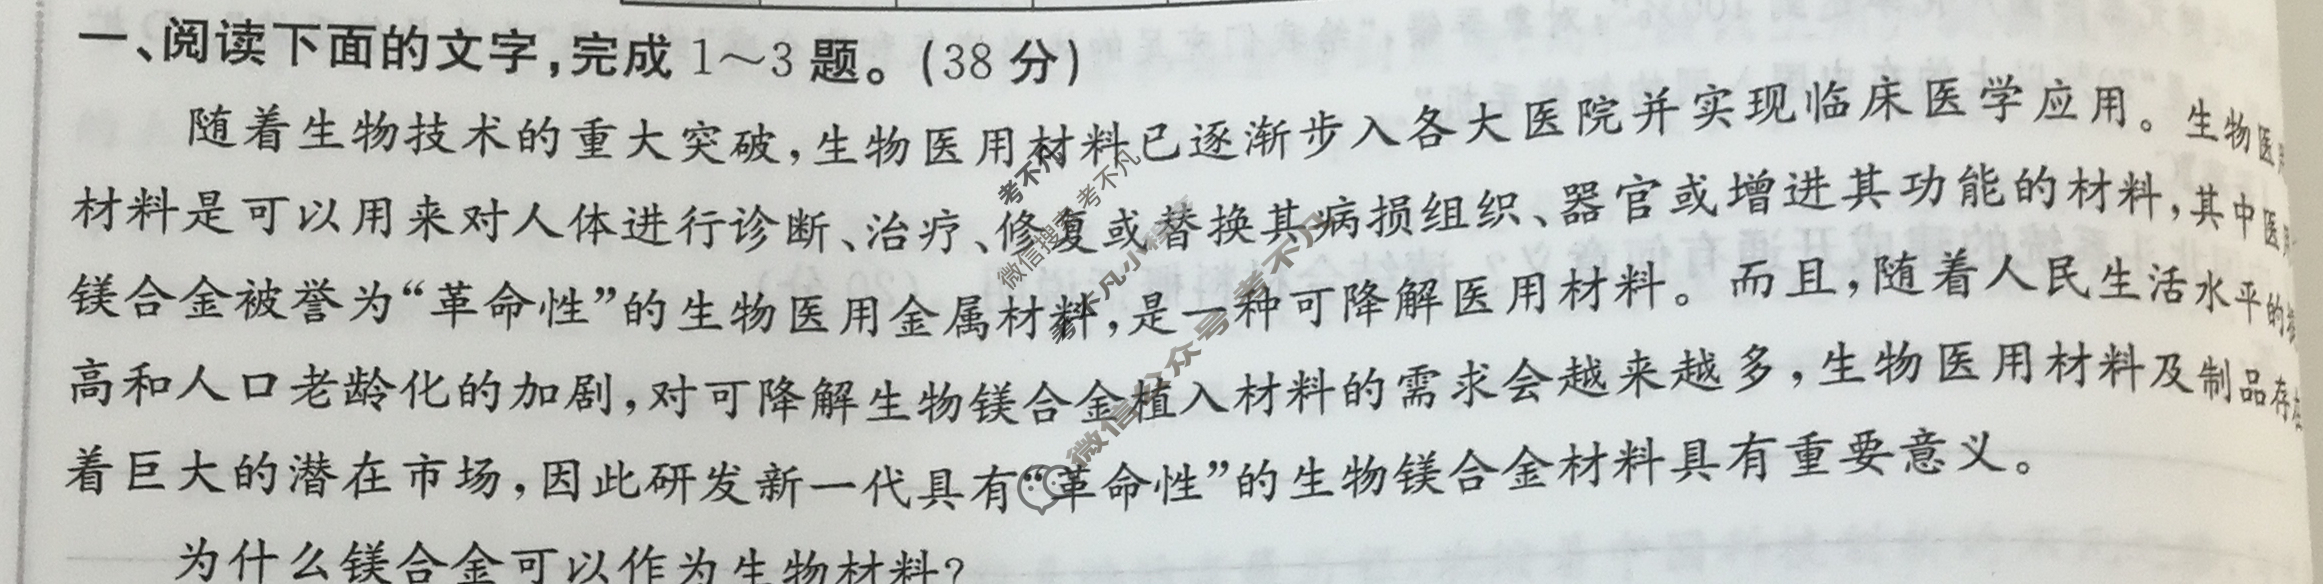 一、阅读下面的文字,完成1～3题。(38分)
随着生物技术的重大突破,生物医用材料已逐渐步入各大医院并实现临床医学应用。生物医用
材料是可以用来对人体进行诊断、治疗、修复或替换其病损组织、器官或增进其功能的材料,其中医用
镁合金被誉为“革命性”的生物医用金属材料,是一种可降解医用材料。而且,随着人民生活水平的提
高和人口老龄化的加剧,对可降解生物镁合金植入材料的需求会越来越多,生物医用材料及制品存在
着巨大的潜在市场,因此研发新一代具有“革命性”的生物镁合金材料具有重要意义。
为什么镁合金可以作为生物材料?
考不凡
微信搜索考不凡
微信公众号
考不凡